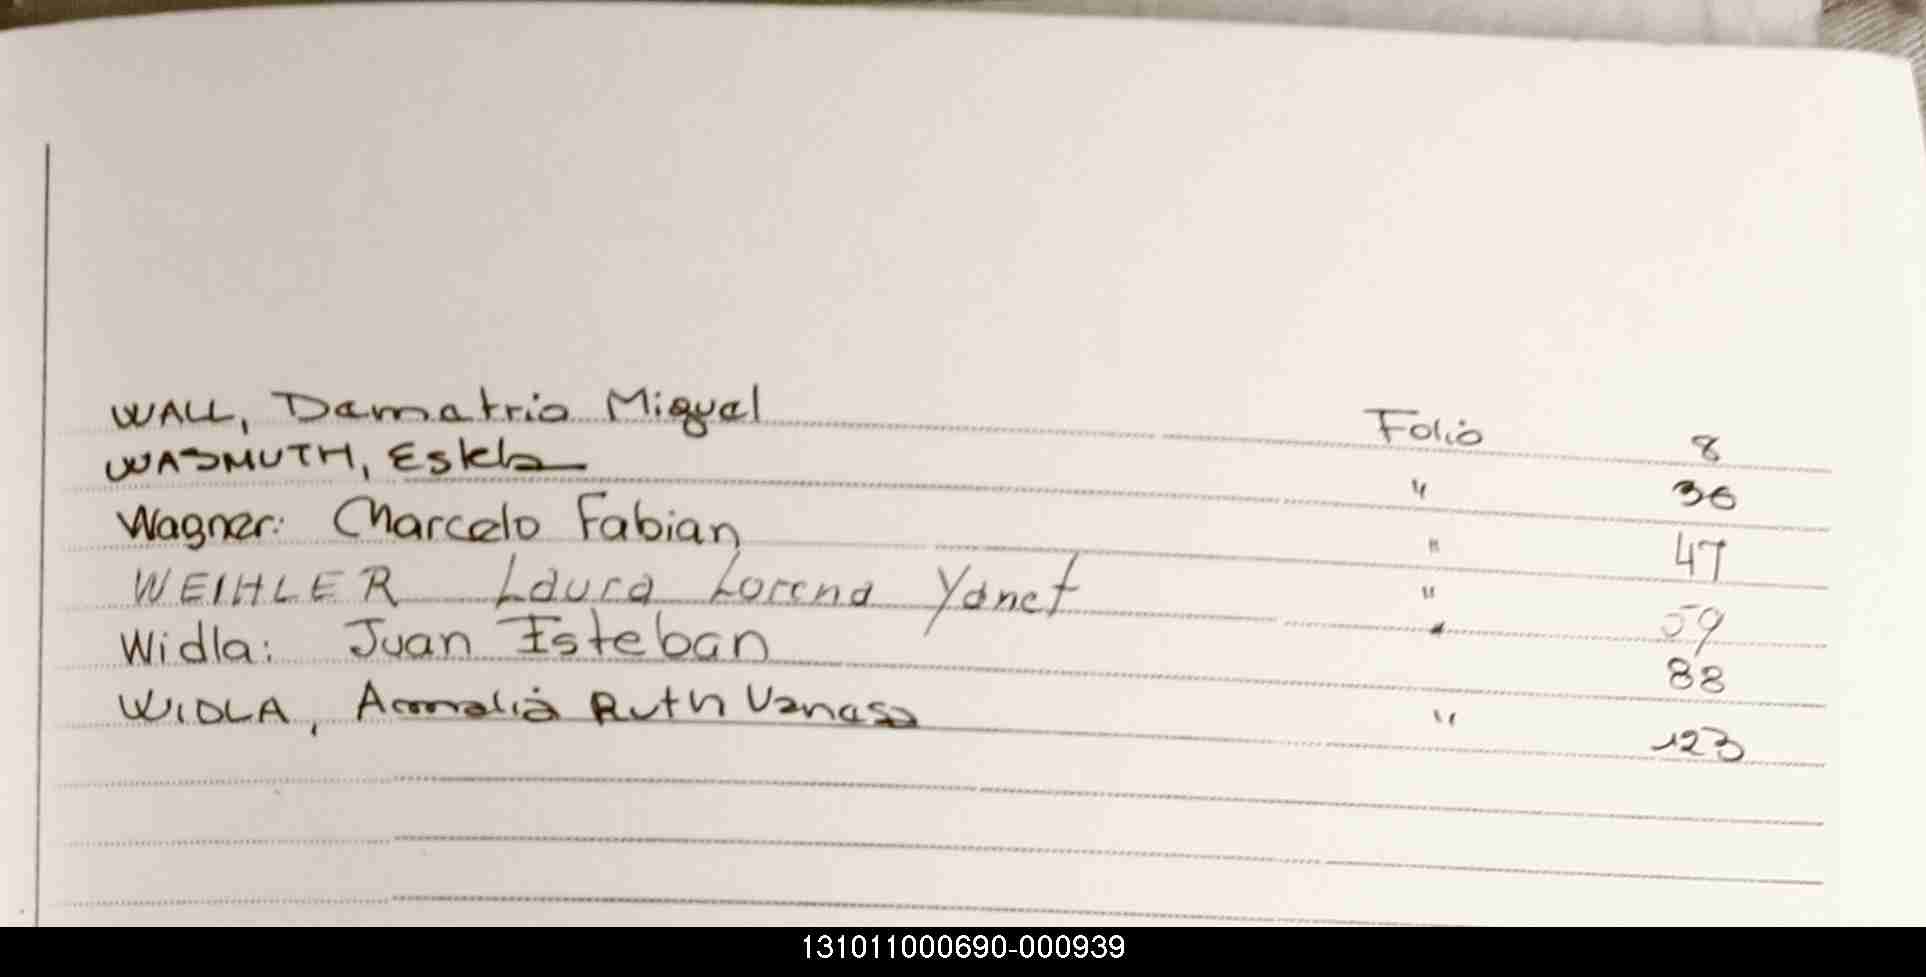 WALL, Demetrio Miguel Folio 8
WASMUTH, Estela " 36
Wagner: Marcelo Fabian " 47
WEIHLER Laura Lorena Yanet " 59
Widla: Juan Esteban " 88
WIDLA, Ammalia Ruth Vanesa " 123
131011000690-000939